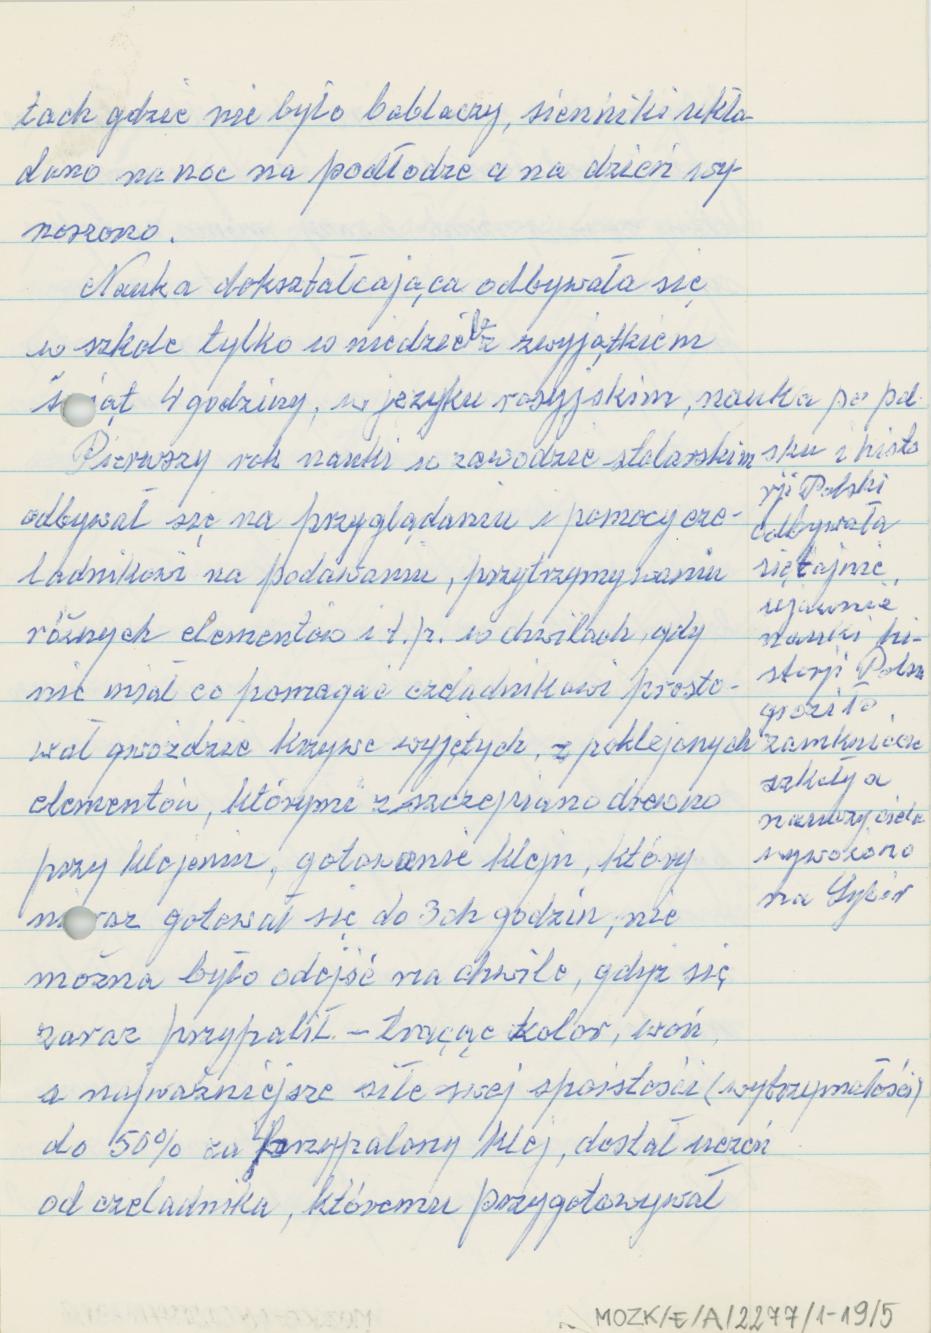 tach gdzie nie było boblaczy, sienniki ukła-
dano na noc na podłodze a na dzień wy-
noszono.
Nauka dokształcająca odbywała się
w szkole tylko w niedziele z wyjątkiem
świąt 4 godziny, w języku rosyjskim, nauka po pol-
Pierwszy rok nauki w zawodzie stolarskim
odbywał się na przyglądaniu i pomocy cze-
ladnikowi na podawaniu, przytrzymywaniu
różnych elementów i t.p. w chwilach, gdy
nie miał co pomagać czeladnikowi prosto-
wał gwoździe krzywe wyjętych, z poklejonych
elementów, którymi z szczepiano drewno
przy klejeniu, gotowanie kleju, który
nieraz gotował się do 3ch godzin, nie
można było odejść na chwile, gdyż się
zaraz przypalił. – tracąc kolor, woń,
a najważniejsze siłe swej spoistości (wytrzymałości)
do 50% za przypalony klej, dostał uczeń
od czeladnika, któremu przygotowywał
sku i histo
rji Polski
odbywała
się tajnie,
ujawnie
nauki hi-
storji Polski
groziło
zamknięcie
szkoły a
nauczyciela
wywożono
na Sybir
MOZK/E/A/2277/1-19/5